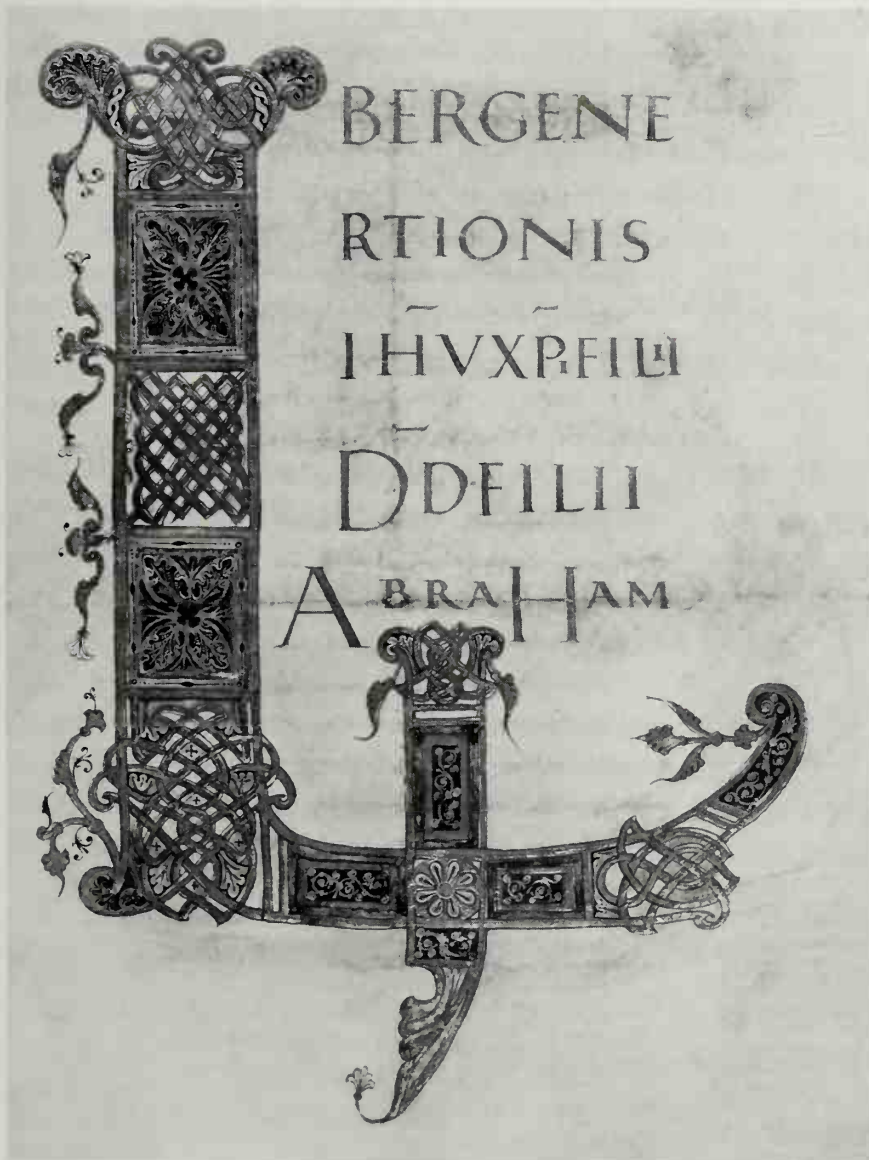 LIBERGENE
RTIONIS
IH̄VXP̄IFILII
D̄DFILII
ABRAHAM